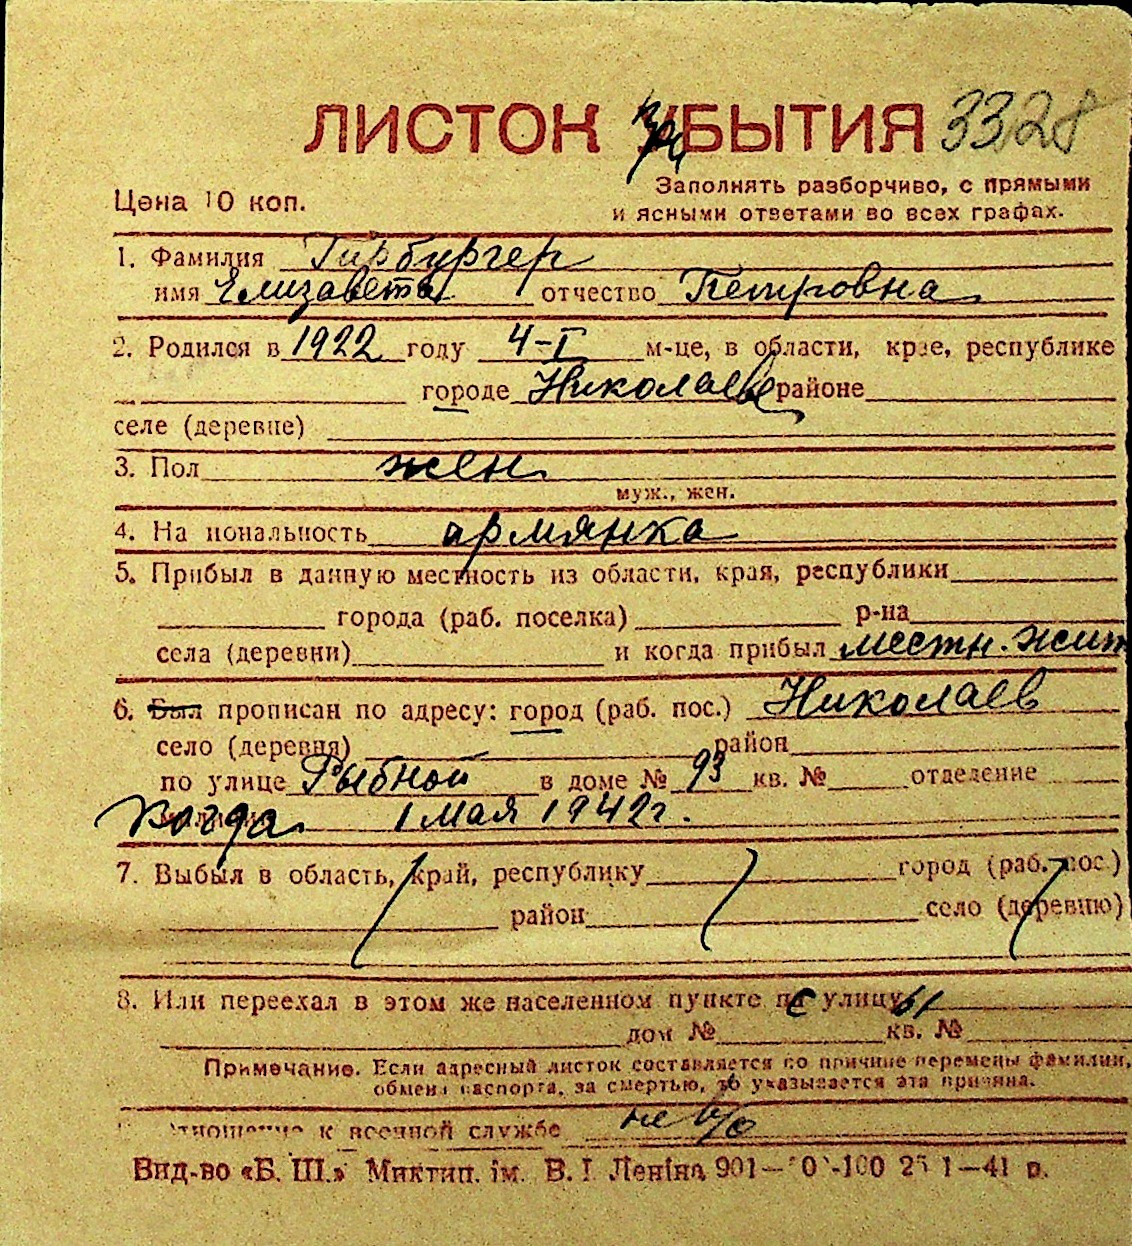 ЛИСТОК ПРИБЫТИЯ 3328
Цена 10 коп.
Заполнять разборчиво, с прямыми
и ясными ответами во всех графах.
1. Фамилия Гирбургер
имя Елизавета отчество Петровна
2. Родился в 1922 году 4-I м-це, в области, крае, республике
городе Николаеве районе
селе (деревне)
3. Пол жен
муж., жен.
4. Национальность армянка
5. Прибыл в данную местность из области, края, республики
города (раб. поселка) р-на
села (деревни) и когда прибыл местн. жит
6. Был прописан по адресу: город (раб. пос.) Николаев
село (деревня) район
по улице Рыбной в доме № 93 кв. № отделение
когда 1 мая 1942 г.
7. Выбыл в область, край, республику город (раб. пос.)
район село (деревню)
8. Или переехал в этом же населенном пункте с улицы
дом № кв. №
Примечание. Если адресный листок составляется по причине перемены фамилии,
обмена паспорта, за смертью, то указывается эта причина.
Отношение к военной службе не в/о
Вид-во «Б. Ш.» Миктип. ім. В. І. Леніна 901— -100 25 1—41 р.